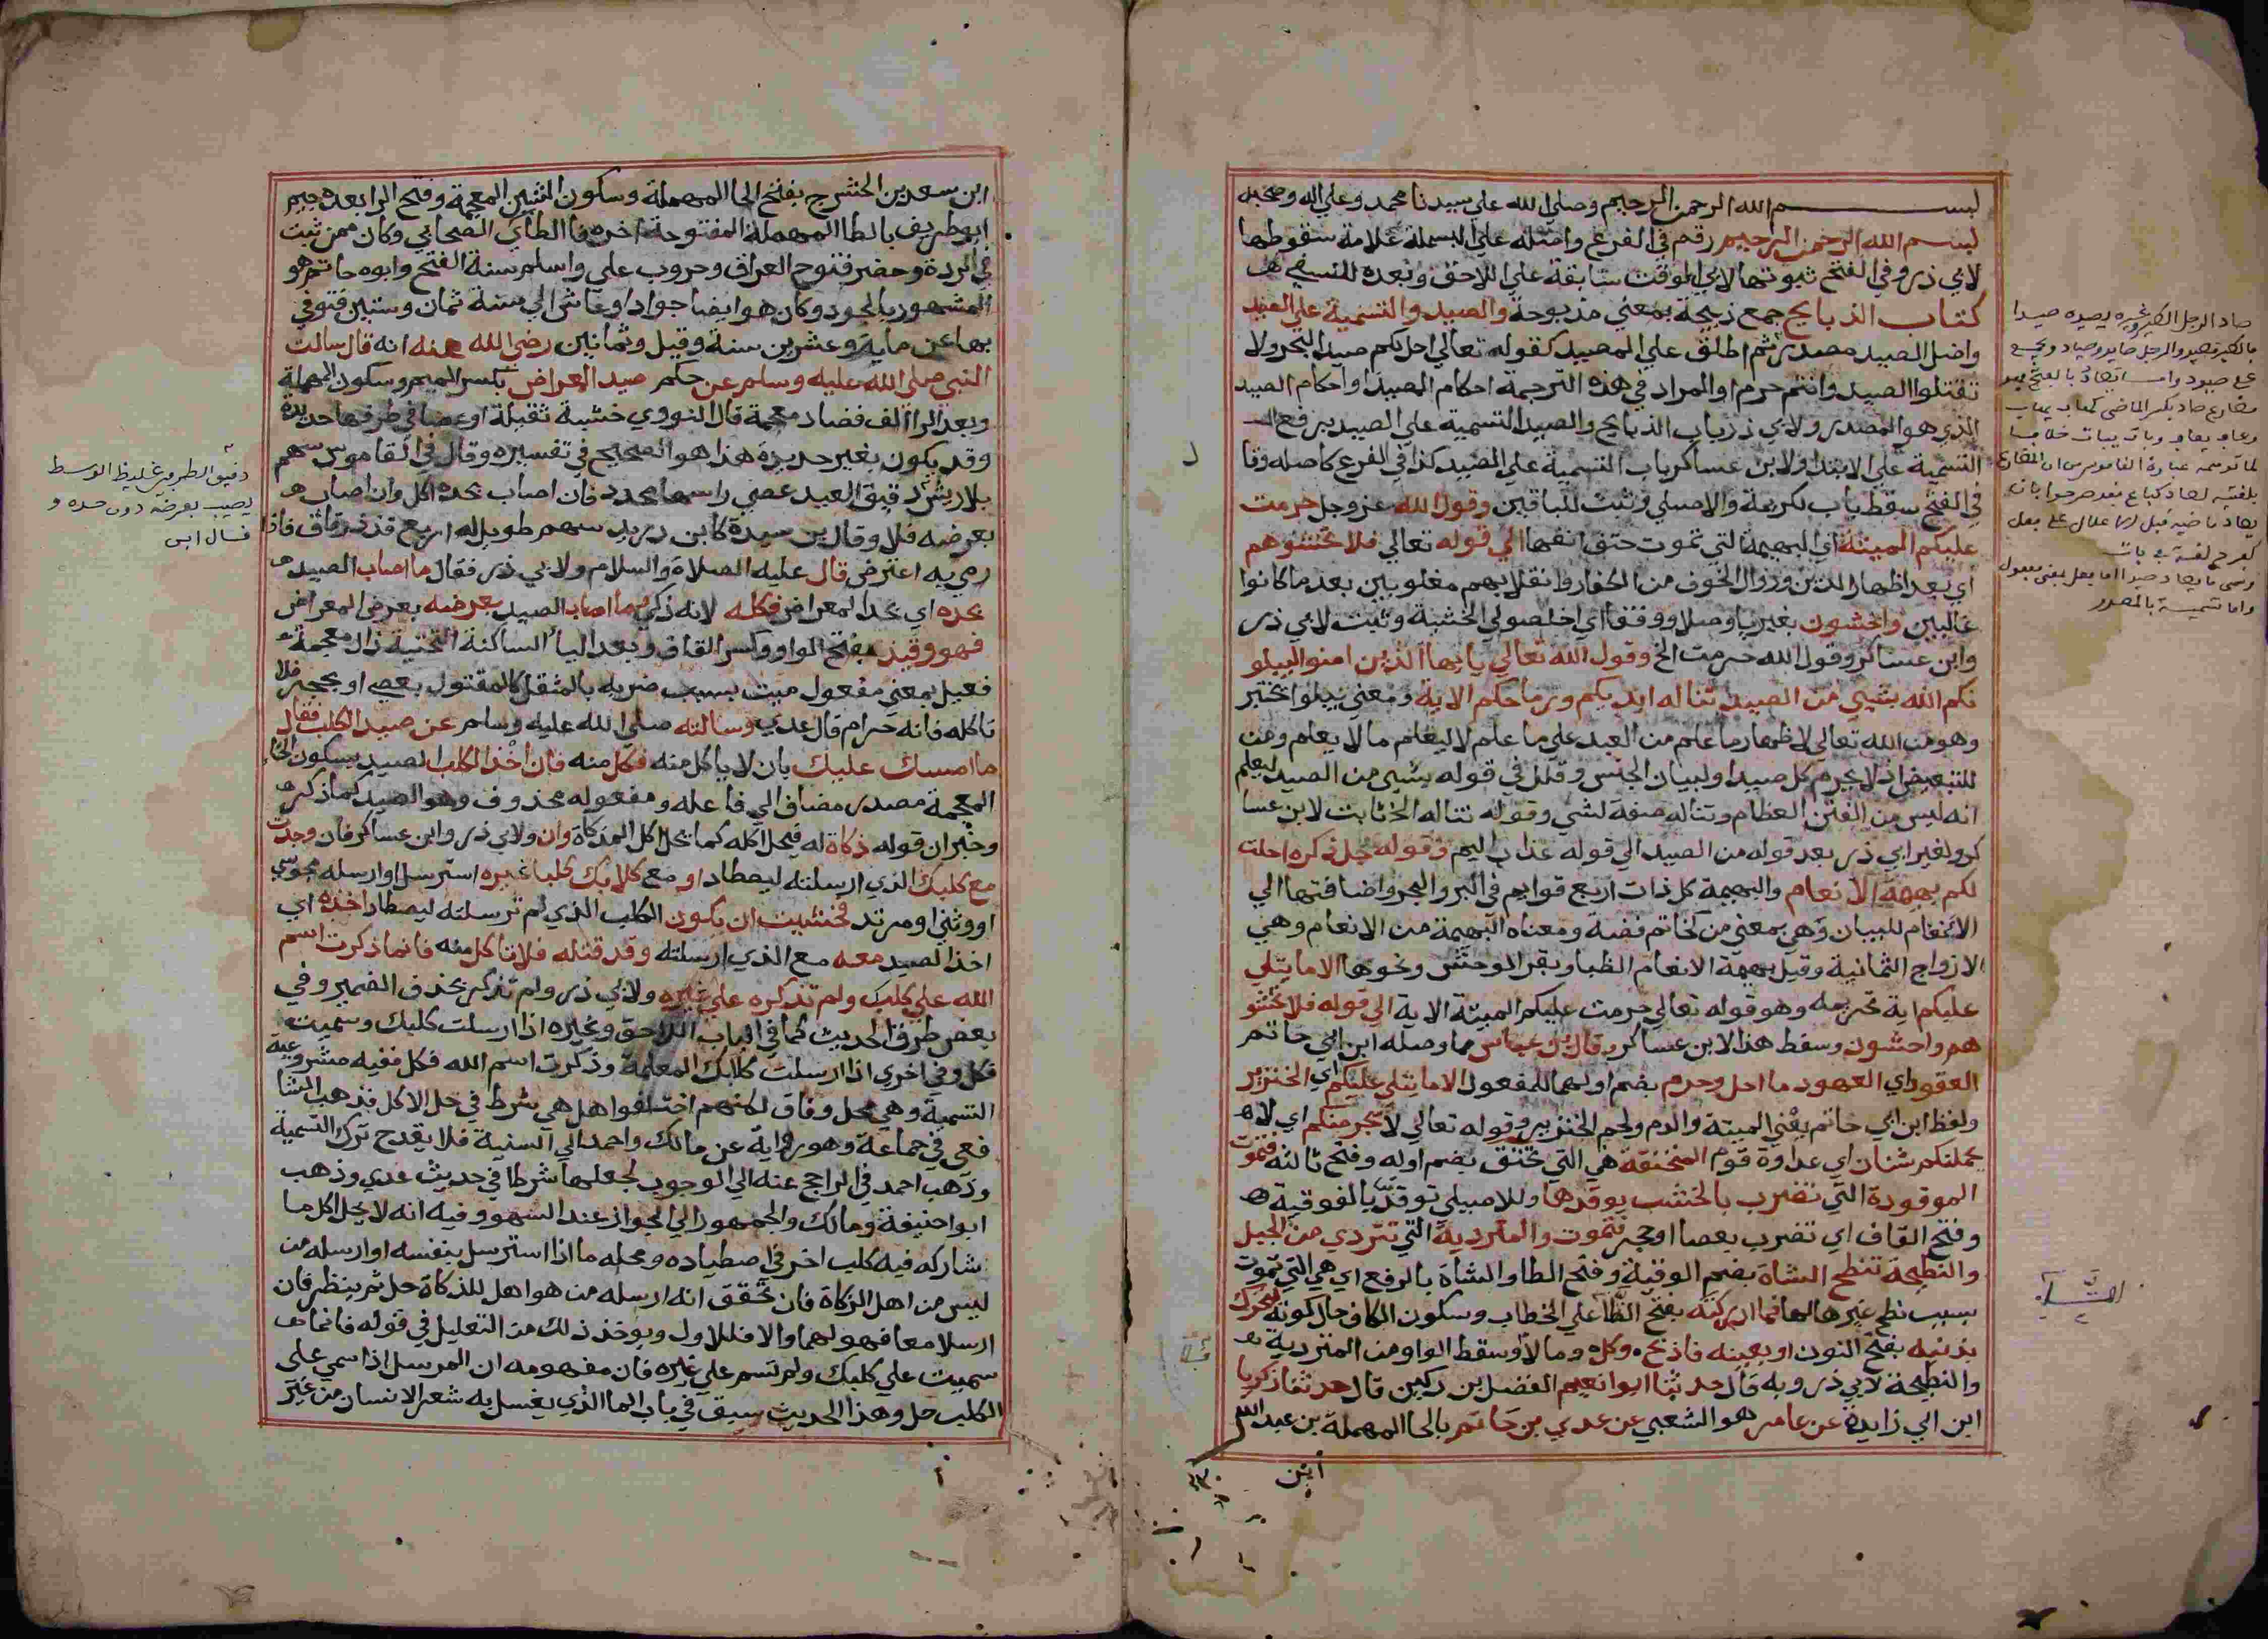 بســـــم الله الرحمن الرحيم وصلي الله علي سيدنا محمد وعلي اله وصحبه
بسم الله الرحمن الرحيم رقم في الفرع وامثله علي البسملة علامة سقوطها
لابي ذر وفي الفتح ثبوتها لابي الوقت سابقة علي اللاحق وبعده للنسفي
كتاب الذبايح جمع ذبيحة بمعني مذبوحة والصيد والتسمية علي الصيد
واصل الصيد مصدر ثم اطلق علي المصيد كقوله تعالي احل لكم صيد البحر ولا
تقتلوا الصيد وانتم حرم او المراد في هذه الترجمة احكام المصيد او احكام الصيد
الذي هو المصدر ولابي ذر باب الذبايح والصيد التسمية علي الصيد برفع
التسمية علي الابتدا ولابن عساكر باب التسمية علي الصيد كذا في الفرع كاصله وقا
في الفتح سقط باب لكريمة والاصيلي وثبت للباقين وقول الله عز وجل حرمت
عليكم الميتة اي البهيمة التي تموت حتق انفها الي قوله تعالي فلا تخشوهم
اي بعد اظهار الدين وزوال الخوف من الكفار وانقلابهم مغلوبين بعد ما كانوا
غالبين واخشون بغير يا وصلا ووقفا اي اخلصو لي الخشية وثبت لابي ذر
وابن عساكر وقول الله حرمت الخ وقول الله تعالي يا يها الذين امنوا ليبلو
نكم الله بشيي من الصيد تناله ايديكم ورماحكم الاية ومعني يبلو يختبر
وهو من الله تعالي لاظهار ما علم من العبد علي ما علم لا ليعلم ما لا يعلم ومن
للتبعيض اذ لا يحرم كل صيد او لبيان الجنس وقلل في قوله بشيي من الصيد ليعلم
انه ليس من الفتن العظام وتناله صفة لشي وقوله تناله الخ ثابت لابن عسا
كر ولغير ابي ذر بعد قوله من الصيد الي قوله عذاب اليم وقوله جل ذكره احلت
لكم بهيمة الانعام والبهيمة كل ذات اربع قوايم في البر والبحر واضافتها الي
الانعام للبيان وهي بمعني من كخاتم فضة ومعناه البهيمة من الانعام وهي
الازواج الثمانية وقيل بهيمة الانعام الظبا وبقر الوحش ونحوها الا ما يتلي
عليكم اية تحريمه وهو قوله تعالي حرمت عليكم الميتة الاية الي قوله فلا تخشو
هم واخشون وسقط هذا لابن عساكر وقال بن عباس مما وصله ابن ابي حاتم
العقود اي العهود ما احل وحرم بضم اولهما للمفعول الا ما يتلي عليكم اي الخنزير
ولفظ ابن ابي حاتم يعني الميتة والدم ولحم الخنزير وقوله تعالي لا يجرمنكم اي لا
يحملنكم شنان اي عداوة قوم المنخنقة هي التي تخنق بضم اوله وفتح ثالثه فتموت
الموقوذة التي تضرب بالخشب يوقذها وللاصيلي توقذ بالفوقية
وفتح القاف اي تضرب بعصا او حجر فتموت والمتردية التي تتردي من الجبل
والنطيحة تنطح الشاة بضم الفوقية وفتح الطا والشاة بالرفع اي هي التي تموت
بسبب نطح غيرها لها فما ادركته بفتح التا علي الخطاب وسكون الكاف حال كونه يتحرك
بذنبه بفتح النون او بعينه فاذبح وكل وما لا وسقط الواو من المتردية
والنطيحة لابي ذر وبه قال حدثنا ابو نعيم الفضل بن دكين قال حدثنا زكريا
ابن ابي زايدة عن عامر هو الشعبي عن عدي بن حاتم بالحا المهملة بن عبد الله
ابن
ابن سعد بن الحشرج بفتح الحا المهملة وسكون الشين المعجمة وفتح الرا بعده جيم
ابو طريف بالطا المهملة المفتوحة اخره فا الطاي الصحابي وكان ممن ثبت
في الردة وحضر فتوح العراق وحروب علي واسلم سنة الفتح وابوه حاتم هو
المشهور بالجود وكان هو ايضا جوادا وعاش الي سنة ثمان وستين فتوفي
بها عن ماية وعشرين سنة وقيل وثمانين رضي الله عنه انه قال سالت
النبي صلى الله عليه وسلم عن حكم صيد المعراض بكسر الميم وسكون المهملة
وبعد الرا الف فضاد معجمة قال النووي خشبة ثقيلة او عصا في طرفها حديدة
وقد يكون بغير حديدة هذا هو الصحيح في تفسيره وقال في القاموس سهم
بلا ريش دقيق العيد عصي راسها محدد فان اصاب بحده اكل وان اصاب
بعرضه فلا وقال بن سيدة كابن دريد سهم طويل له اربع قذذ رقاق فاذا
رمي به اعترض قال عليه الصلاة والسلام ولابي ذر فقال ما اصاب الصيد
بحده اي بحد المعراض فكله لانه ذكي وما اصاب الصيد بعرضه بعرض المعراض
فهو وقيذ بفتح الواو وكسر القاف وبعد اليا الساكنة التحتية ذال معجمة
فعيل بمعني مفعول ميت بسبب ضربه بالمثقل كالمقتول بعصي او بحجر فلا
تاكله فانه حرام قال عدي وسالته صلي الله عليه وسلم عن صيد الكلب فقال
ما امسك عليك بان لا ياكل منه فكل منه فان اخذ الكلب الصيد بسكون الخا
المعجمة مصدر مضاف الي فاعله ومفعوله محذوف وهو الصيد كما ذكر
وخبر ان قوله ذكاة له فيحل اكله كما يحل اكل المذكاة وان ولابي ذر وابن عساكر فان وجدت
مع كلبك الذي ارسلته ليصطاد او مع كلابك كلبا غيره استرسل او ارسله مجوسي
او وثني او مرتد فخشيت ان يكون الكلب الذي لم ترسلته ليصطاد اخذه اي
اخذ الصيد معه مع الذي ارسلته وقد قتله فلا تاكل منه فانما ذكرت اسم
الله علي كلبك ولم تذكره علي غيره ولابي ذر ولم تذكر بحذف الضمير وفي
بعض طرق الحديث كما في الباب اللاحق وغيره اذا ارسلت كلبك وسميت
فكل وفي اخري اذا ارسلت كلابك المعلمة وذكرت اسم الله فكل ففيه مشروعية
التسمية وهي محل وفاق لكنهم اختلفوا هل هي شرط في حل الاكل فذهب الشا
فعي في جماعة وهو رواية عن مالك واحمد الي السنية فلا يقدح ترك التسمية
وذهب احمد في الراجح عنه الي الوجوب لجعلها شرطا في حديث عدي وذهب
ابو حنيفة ومالك والجمهور الي الجواز عند السهو وفيه انه لا يحل اكل ما
شاركه فيه كلب اخر في اصطياده ومحله ما اذا استرسل بنفسه او ارسله من
ليس من اهل الزكاة فان تحقق انه ارسله من هو اهل للذكاة حل ثم ينظر فان
ارسلا معا فهو لهما والا فللاول ويوخذ ذلك من التعليل في قوله فانما
سميت علي كلبك ولم تسم علي غيره فان مفهومه ان المرسل اذا سمي علي
الكلب حل وهذا الحديث سبق في باب الما الذي يغسل به شعر الانسان من غير
دقيق الطرفين غليظ الوسط
يصيب بعرضه دون حده و